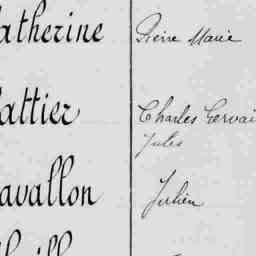 atherine Pierre Marie
attier Charles Gervai
Jules
avallon Julien